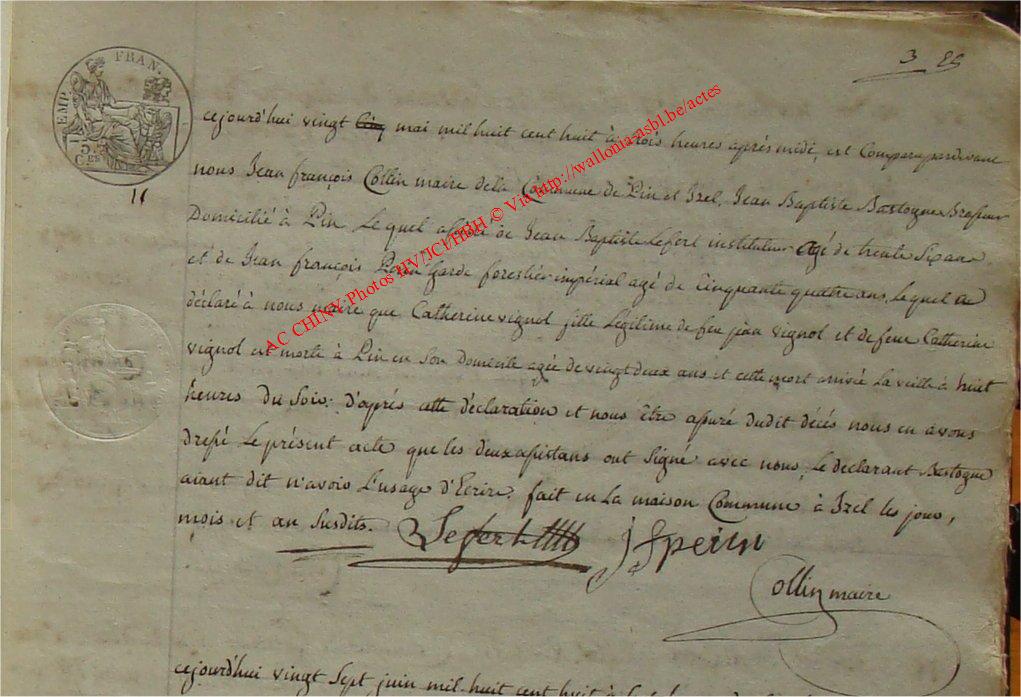 3 25
EMP. FRAN.
5.
C.ES
cejourd'hui vingt cinq mai mil huit cent huit à trois heures après midi, est Comparu pardevant
nous Jean françois Collin maire de la Commune de Pin et Izel, Jean Baptiste Bastogne Brasseur
Domicilié à Pin, Le quel assisté de Jean Baptiste Lefert instituteur agé de trente Six ans
et de Jean françois Perin Garde forestier impérial agé de Cinquante quatre ans, Le quel a
déclaré à nous maire que Catherine vignol fille Légitime de feu jean vignol et de feue Catherine
vignol est morte à Pin en Son Domicile agée de vingt deux ans et cette mort arrivée La veille à huit
heures du Soir: D'après cette déclaration et nous être assuré dudit décés nous en avons
dressé Le présent acte que les deux assistans ont Signé avec nous, Le déclarant Bastogne
aiant dit n'avoir L'usage d'Ecrire. fait en La maison Commune à Izel les jour,
mois et an Susdits.
Lefert
J f perin
Collin maire
cejourd'hui vingt Sept juin mil huit cent huit à
AC CHINY Photos HV/JCI/HBH © Via http://wallonia-asbl.be/actes